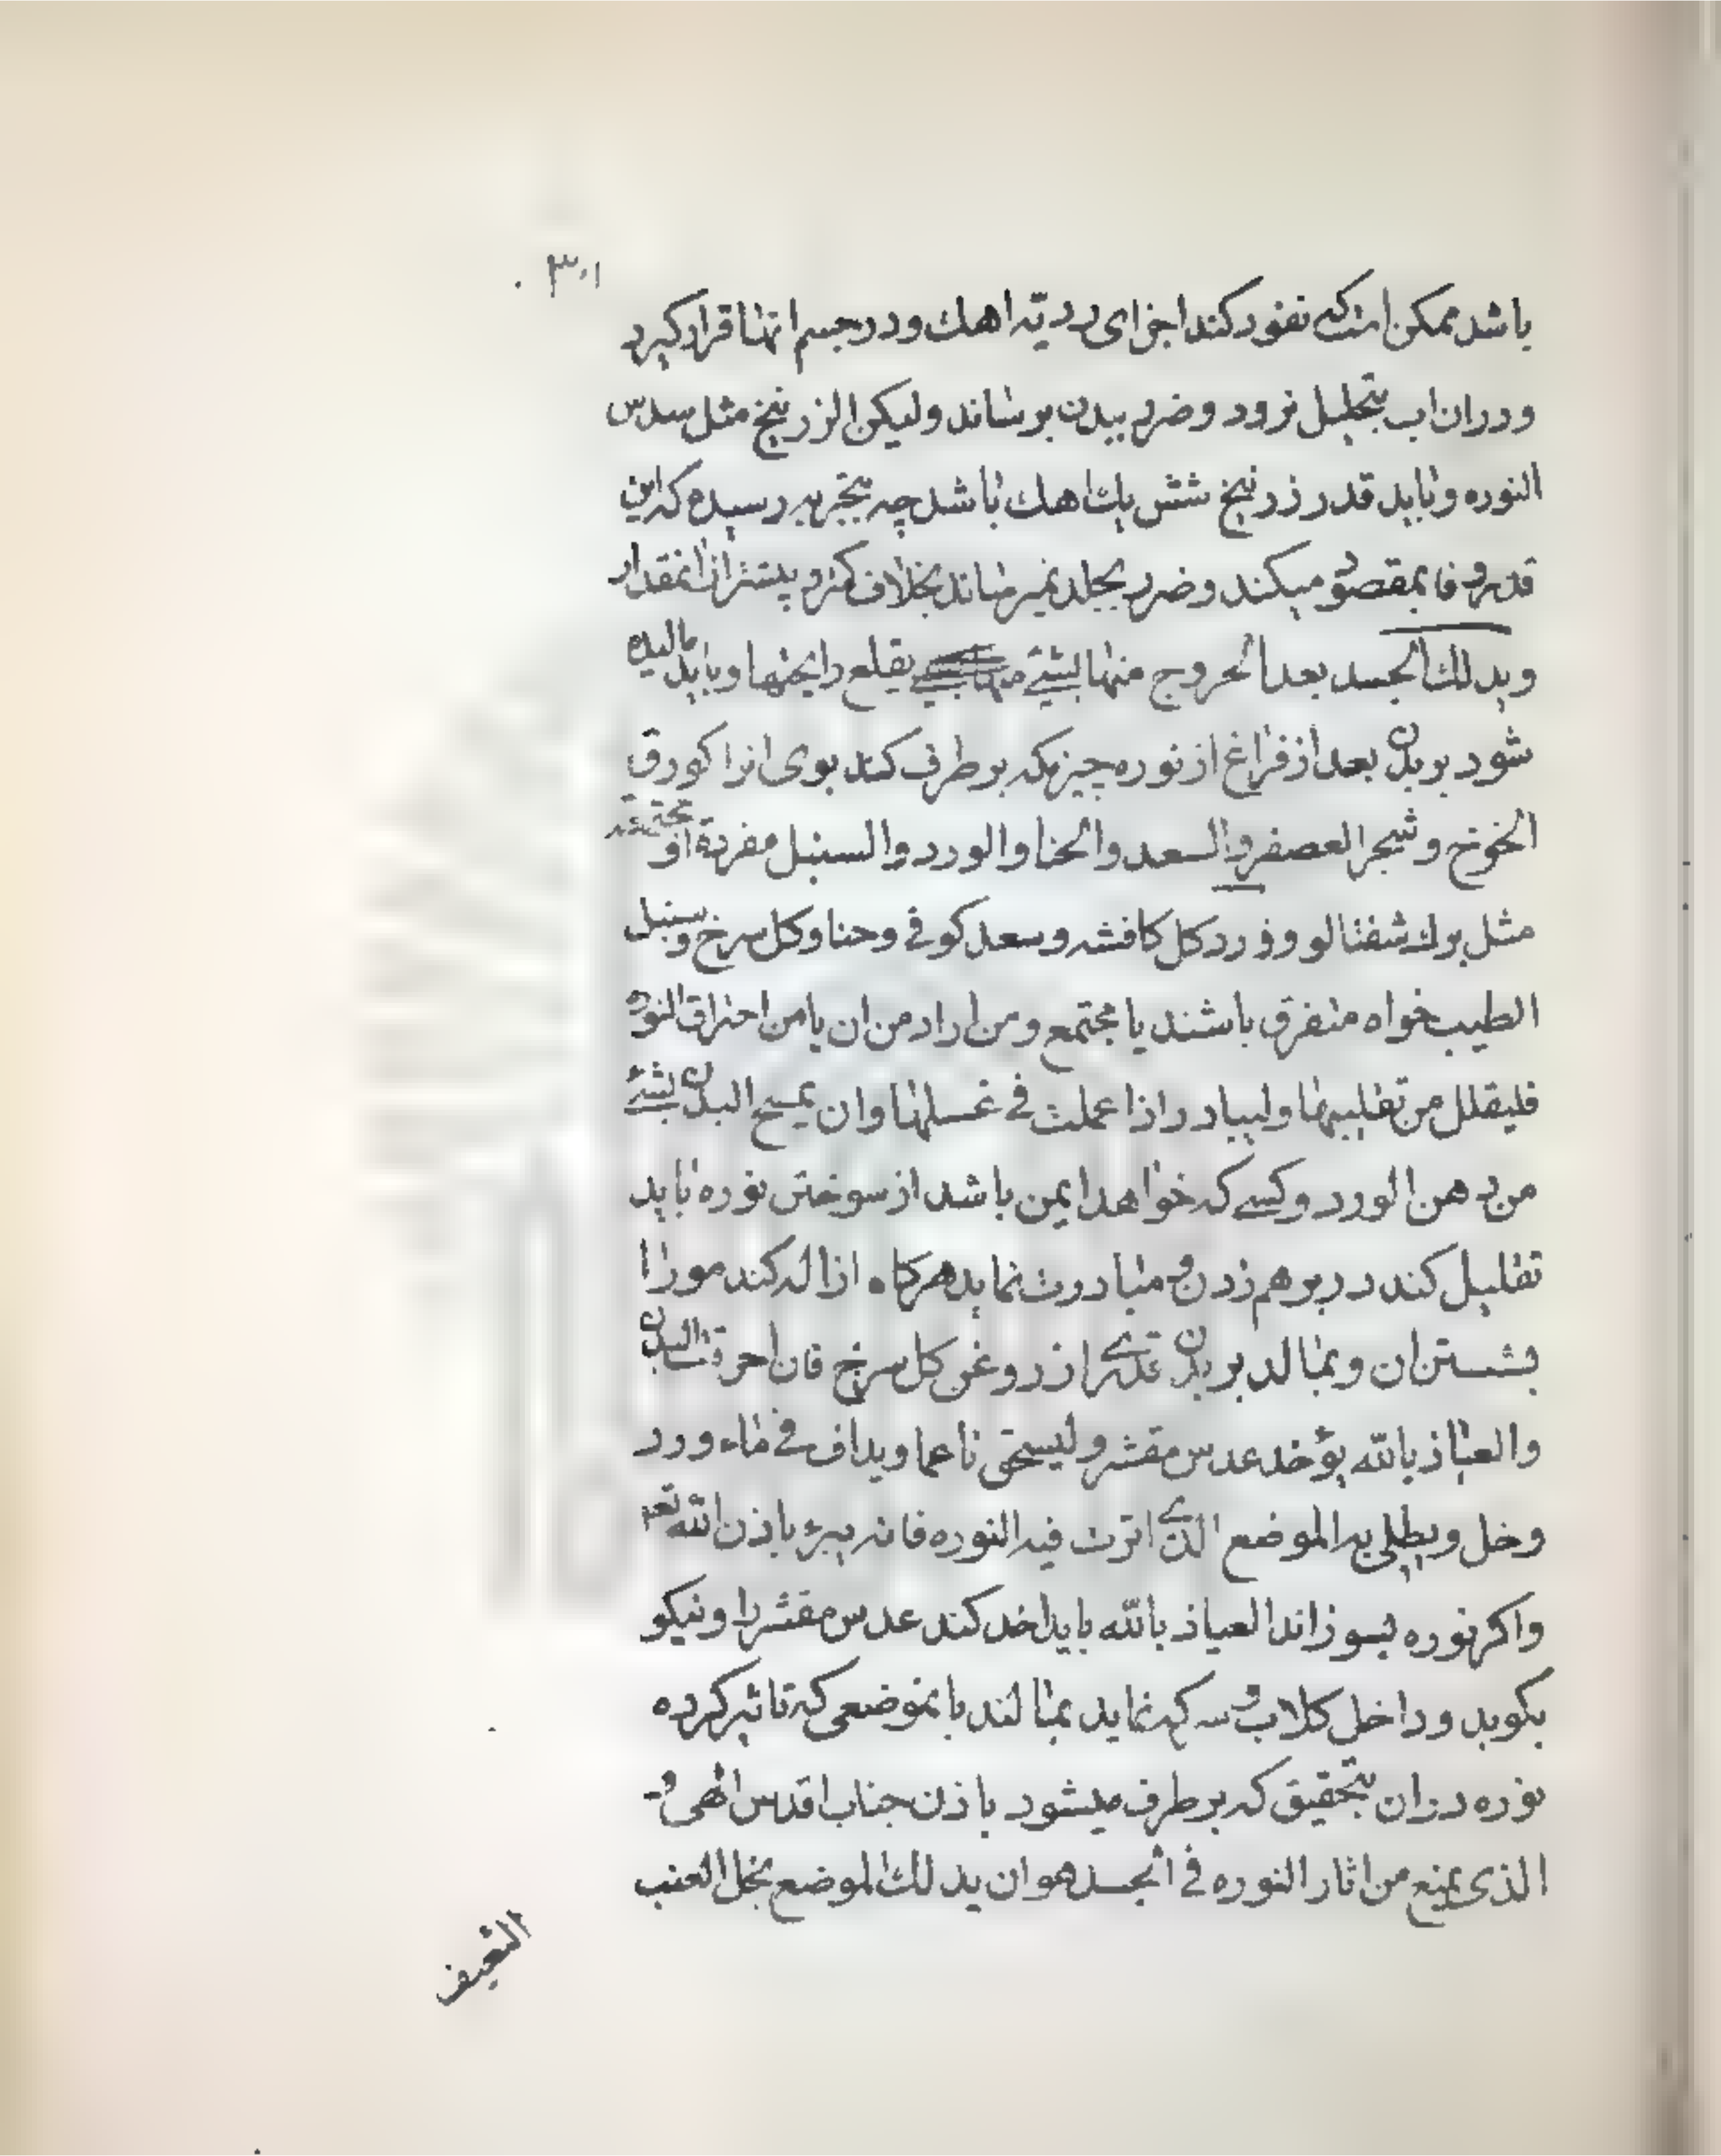 ۳۰۱
باشد ممکن است که نفود کند اجزای ردیّه اهك ودر جسم انها قرار کیرد
ودران اب بتحلیل نرود وضرر ببدن برساند ولیکن الزرنیخ مثل سدس
النوره وباید قدر زرنیخ شش یك اهك باشد چه بتجربه رسیده که این
قدر وفا بمقصود میکند وضرر بجلد نمیرساند بخلاف کمتر و بیشتر از انمقدار
ویدلك الجسد بعد الخروج منها بشیٔ یقلع رایحتها وباید مالیده
شود بر بدن بعد از فراغ از نوره چیزیکه بر طرف کند بوی انرا کورق
الخوخ و شجر العصفر والسعد والحنا والورد والسنبل مفردة او مجتمعة
مثل برك شفتالو و ورد کل کافشه و سعد کوفی وحنا وکل سرخ و سنبل
الطیب خواه متفرق باشند یا مجتمع ومن اراد من ان یامن احتراق النوره
فلیقلل من تقلیبها ولیبادر اذا عملت فی غسلها وان یمسح البدن بشیٔ
من دهن الورد وکسی که خواهد ایمن باشد از سوختن نوره باید
تقلیل کند در برهم زدن و مبادرت نماید هرکاه ازاله کند مورا
بشستن ان وبمالد بر بدن قدری از روغن کل سرخ فان احرقت البدن
والعیاذ بالله یؤخد عدس مقشر ولیسحق ناعما ویداف فی ماء ورد
وخل ویطلی به الموضع الذی اثرت فیه النوره فانه یبرء باذن الله تعم
واکر نوره بسوزاند العیاذ بالله باید اخد کند عدس مقشر را ونیکو
بکوبد وداخل کلاب و سرکه نماید بمالند بانموضعی که تاثیر کرده
نوره دران بتحقیق که بر طرف میشود باذن جناب اقدس الهی و
الذی یمنع من اثار النوره فی الجسد هو ان یدلك الموضع بخل العنب